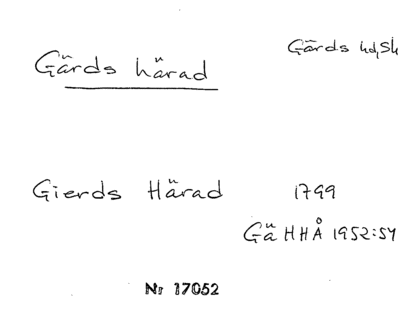 Gärds härad
Gärds hd, Sk
Gierds Härad 1799
Gä HHÅ 1952:54
Nr 17052